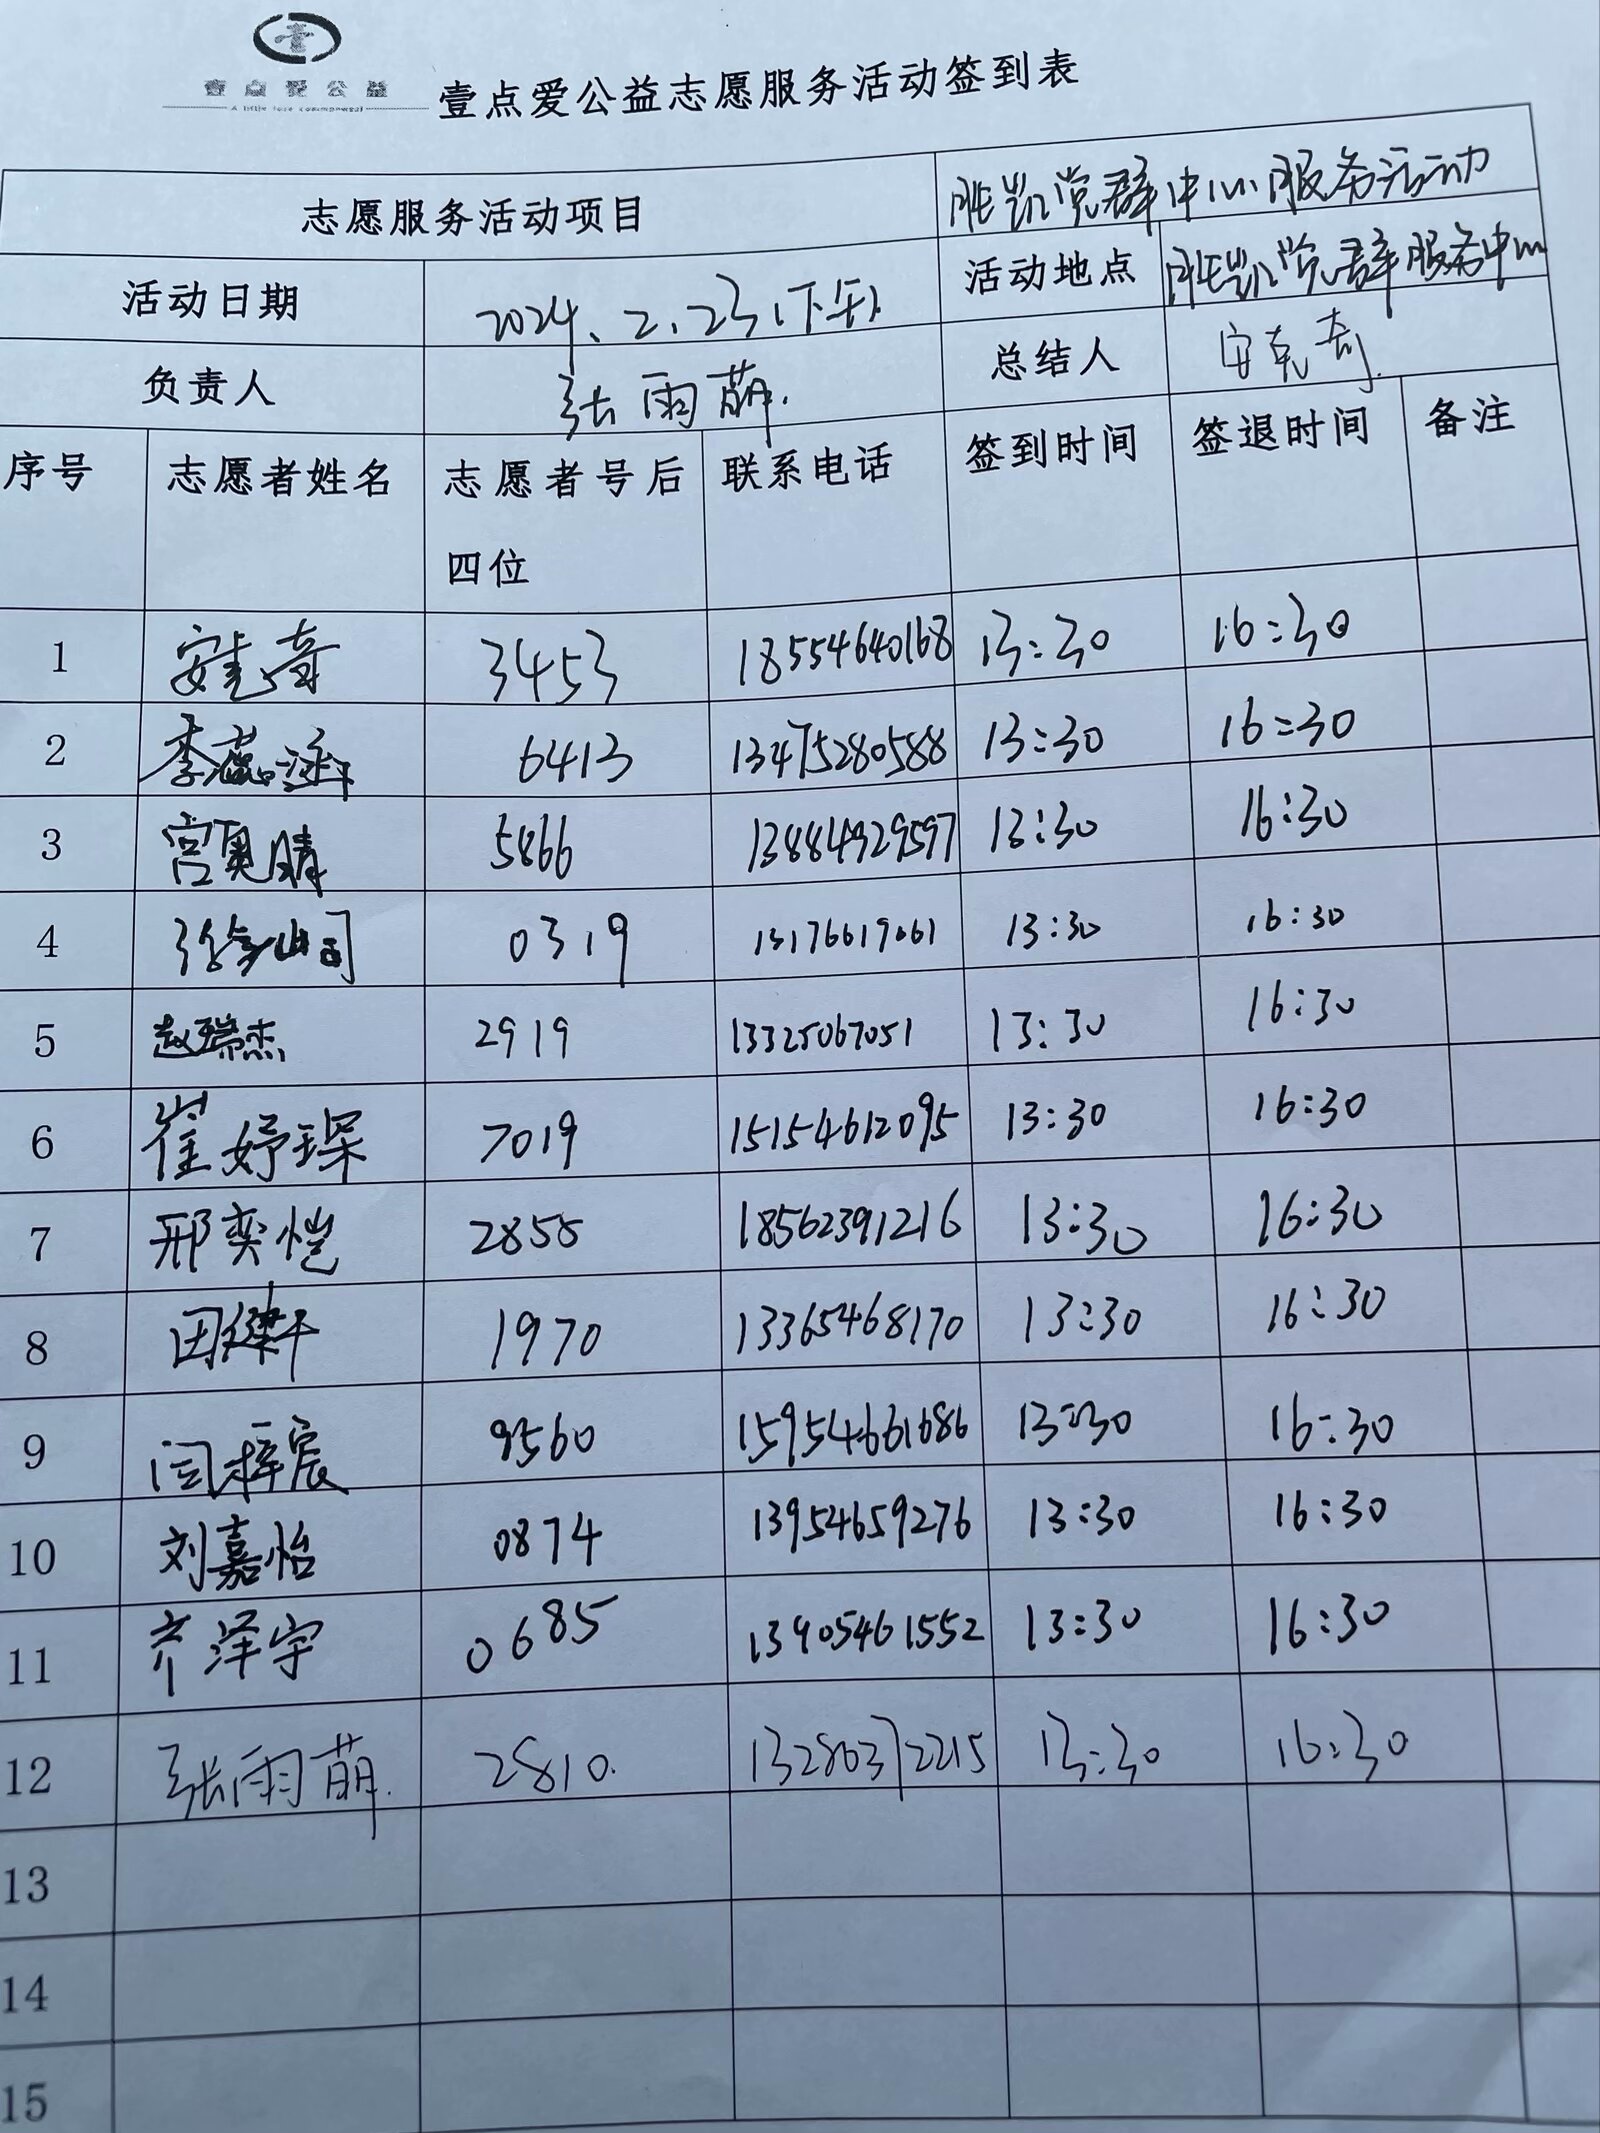 壹点爱公益
A little love commonweal
壹点爱公益志愿服务活动签到表
志愿服务活动项目 胜凯党群中心服务活动
活动日期 2024、2、23下午 活动地点 胜凯党群服务中心
负责人 张雨萌. 总结人 安克奇
序号 志愿者姓名 志愿者号后四位 联系电话 签到时间 签退时间 备注
1 安克奇 3453 18554640168 13:30 16:30
2 李蕊涵 6413 13475280588 13:30 16:30
3 宫奥晴 5866 13884929597 13:30 16:30
4 0319 13176617061 13:30 16:30
5 赵瑞杰 2919 13325067051 13:30 16:30
6 崔妤琛 7019 15154612095 13:30 16:30
7 邢奕恺 2858 18562391216 13:30 16:30
8 1970 13365468170 13:30 16:30
9 闫梓宸 9560 15954661686 13:30 16:30
10 刘嘉怡 0874 13954659276 13:30 16:30
11 齐泽宇 0685 13905461552 13:30 16:30
12 张雨萌. 2810. 13280372215 13:30 16:30
13
14
15